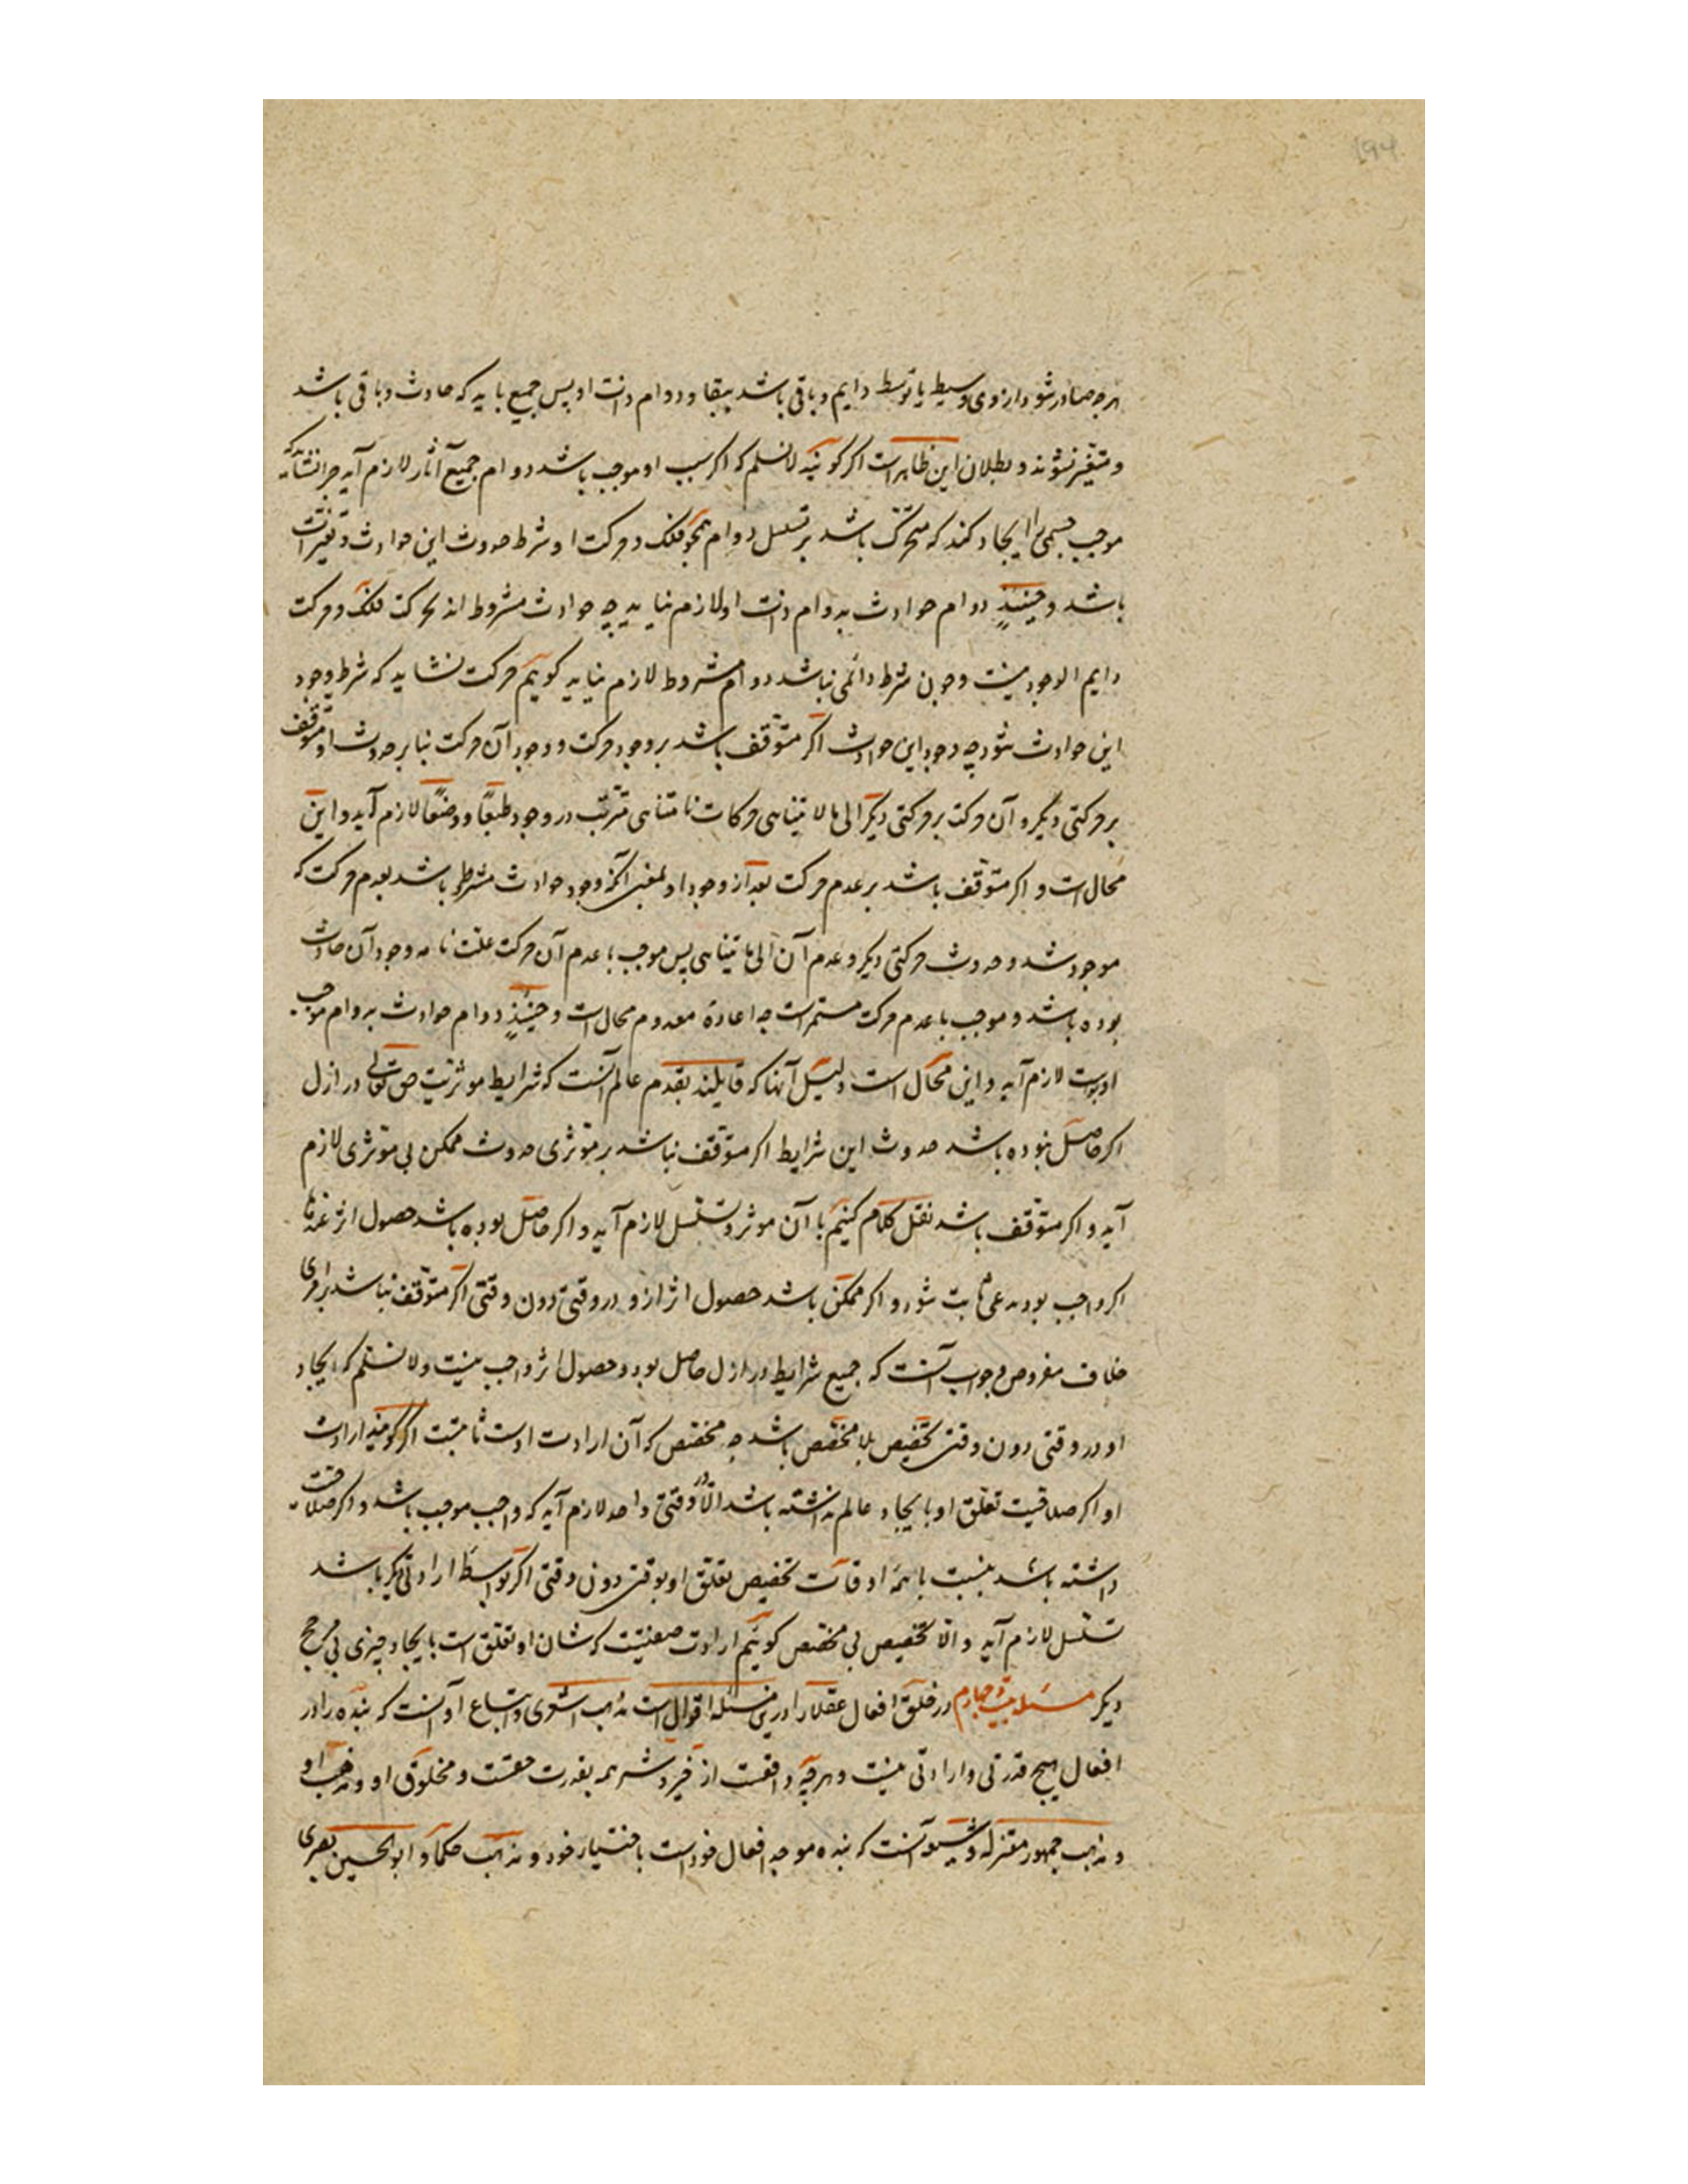 ۱۹۴
هرچه صادر شود از وی وسیط یا توسط دایم و باقی باشد ببقا و دوام ذات او پس جمیع باید که حادث و باقی باشد
و متغیر نشوند و بطلان این ظاهرات اکر کویند لانسلم که اکر سبب او موجب باشد دوام جمیع آثار لازم آید چرا نشاید که
موجب جسمی را ایجاد کند که متحرک باشد بر تسلسل دوام همچو فلک و حرکت او شرط حدوث این حوادث و تغیرات
باشد و حینئذٍ دوام حوادث بدوام ذات او لازم نیاید چه حوادث مشروط اند بحرکت فلک و حرکت
دایم الوجود نیست و چون شرط دائمی نباشد دوام مشروط لازم نیاید کوییم حرکت نشاید که شرط وجود
این حوادث شود چه وجود این حوادث اکر متوقف باشد بر وجود حرکت و وجود آن حرکت بنا بر حدوث او متوقف
بر حرکتی دیکر و آن حرکت بر حرکتی دیکر الی ما لا یتناهی حرکات نا متناهی مترتب در وجود طبعًا و وضعًا لازم آید و این
محال است و اکر متوقف باشد بر عدم حرکت بعد از وجود او بمعنی آنکه وجود حوادث مشروط باشد بعدم حرکت که
موجود شد و حدوث حرکتی دیکر و عدم آن الی ما یتناهی پس موجب با عدم آن حرکت علت تامه وجود آن حادث
بوده باشد و موجب با عدم حرکت مستمر است چه اعادة معدوم محال است و حینئذٍ دوام حوادث بدوام موجب
اوست لازم آید و این محال است دلیل آنها که قایلند بقدم عالم آنست که شرایط موثریت حق تعالی در ازل
اکر حاصل نبوده باشد حدوث این شرایط اکر متوقف نباشد بر موثری حدوث ممکن بی موثری لازم
آید و اکر متوقف باشد نقل کلام کنیم با آن موثر و تسلسل لازم آید و اکر حاصل بوده باشد حصول اثر عندها
اکر واجب بود مدعی ثابت شود و اکر ممکن باشد حصول اثر ازو در وقتی دون وقتی اکر متوقف نباشد بر امری
خلاف مفروض و جواب آنست که جمیع شرایط در ازل حاصل بود و حصول اثر واجب نیست و لانسلم که ایجاد
او در وقتی دون وقتی تخصیص بلا مخصص باشد چه مخصص که آن ارادت اوست ثابتست اکر کویند ارادت
او اکر صلاقیت تعلق او بایجاد عالم نداشته باشد الا در وقتی واحد لازم آید که واجب موجب باشد و اکر صلاقت
داشته باشد بنسبت با همه اوقات تخصیص تعلق او بوقتی دون وقتی اکر بواسطه ارادتی دیکر باشد
تسلسل لازم آید و الا تخصیص بی مخصص کوییم ارادت صفتیست که شان او تعلق است بایجاد چیزی بی مرجح
دیکر مسئله بیست و چهارم در خلق افعال عقلا را درین مسئله اقوال است مذهب اشعری و اتباع او آنست که بنده را در
افعال هیچ قدرتی و ارادتی نیست و هرچه واقعست از خیر و شر همه بقدرت حقست و مخلوق او و مذهب او
و مذهب جمهور معتزله و شیعه آنست که بنده موجد افعال خود است باختیار خود و مذهب حکما و ابوالحسین بصری